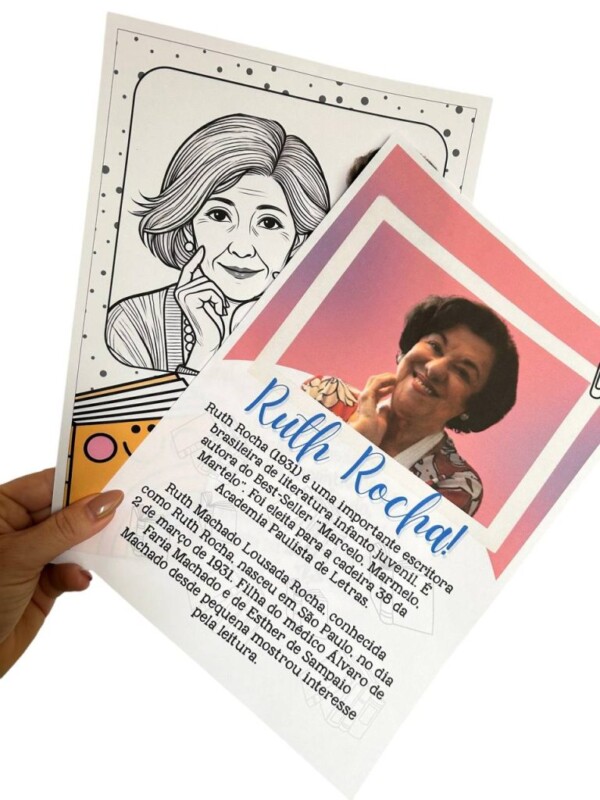 Ruth Rocha!
Ruth Rocha (1931) é uma importante escritora
brasileira de literatura infanto juvenil. É
autora do Best-Seller "Marcelo, Marmelo,
Martelo". Foi eleita para a cadeira 38 da
Academia Paulista de Letras.
Ruth Machado Lousada Rocha, conhecida
como Ruth Rocha, nasceu em São Paulo, no dia
2 de março de 1931. Filha do médico Álvaro de
Faria Machado e de Esther de Sampaio
Machado desde pequena mostrou interesse
pela leitura.